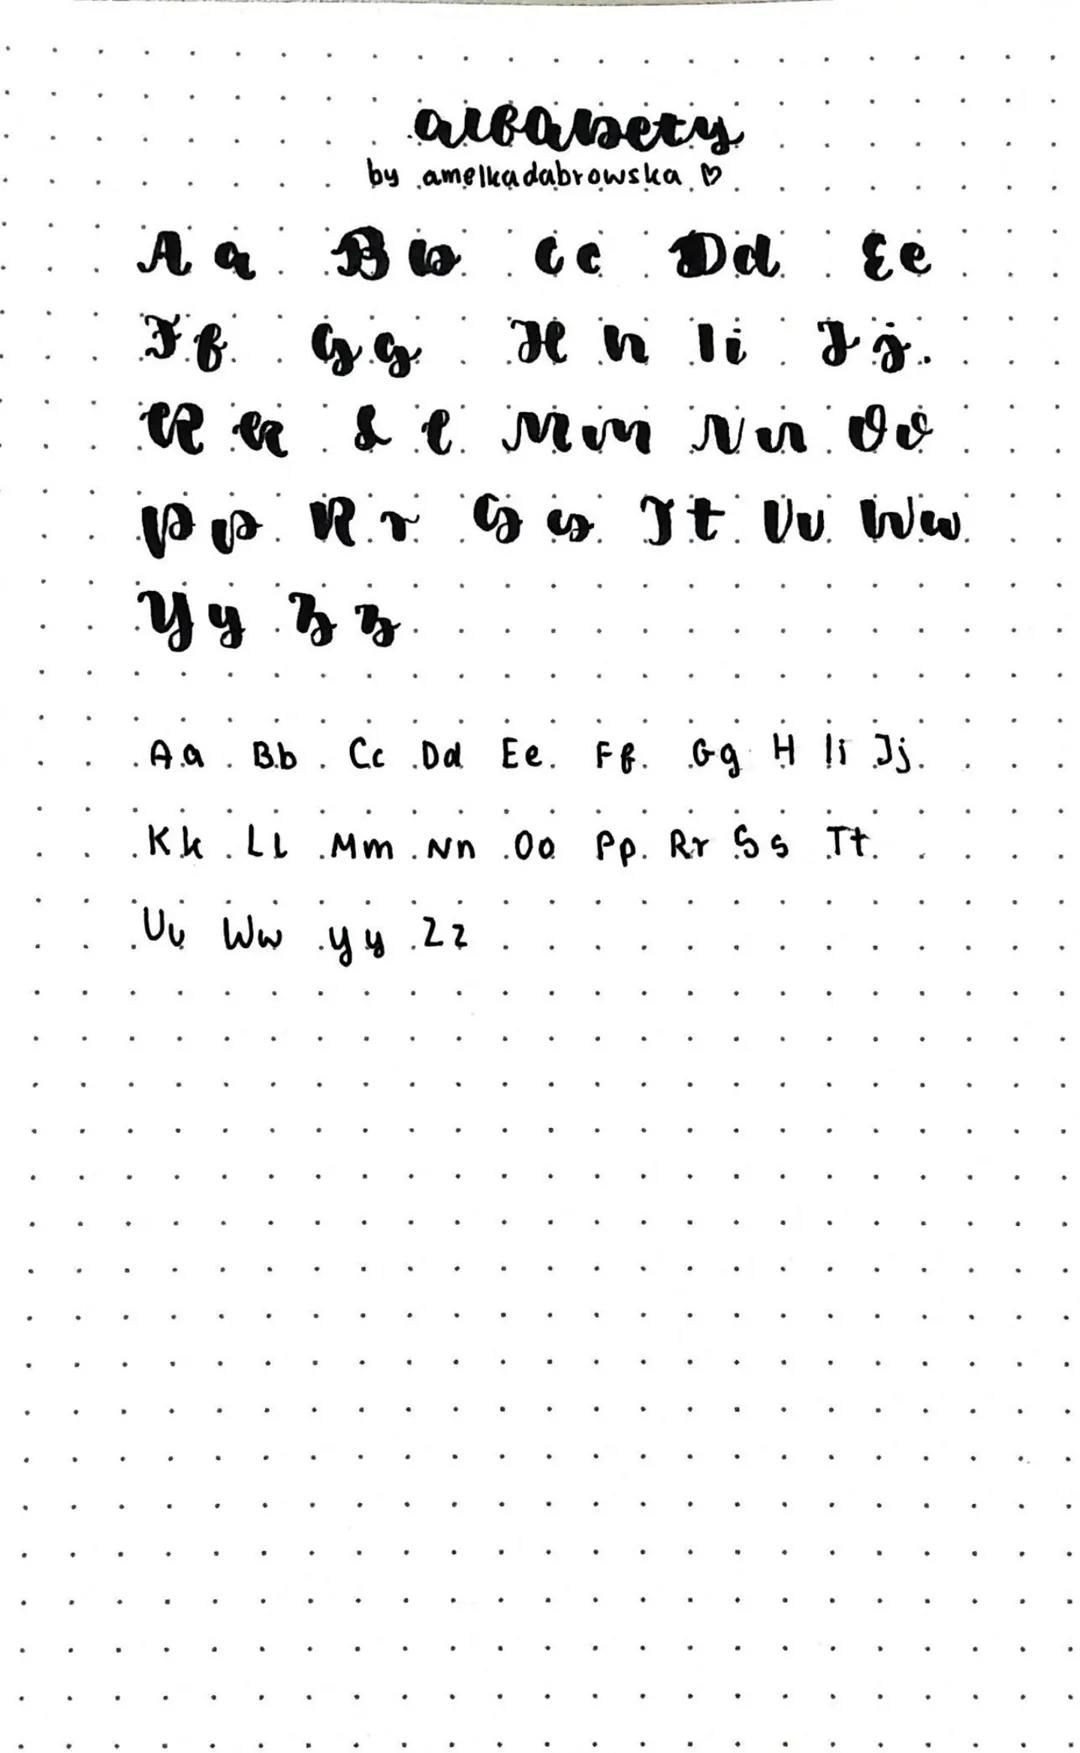 alfabety
by amelkadabrowska ♡
A a B b C c D d E e
F f G g H h I i J j
K k L l M m N n O o
P p R r S s T t U u W w
Y y Z z
Aa Bb Cc Dd Ee Ff Gg H Ii Jj
Kk Ll Mm Nn Oo Pp Rr Ss Tt
Uu Ww Yy Zz